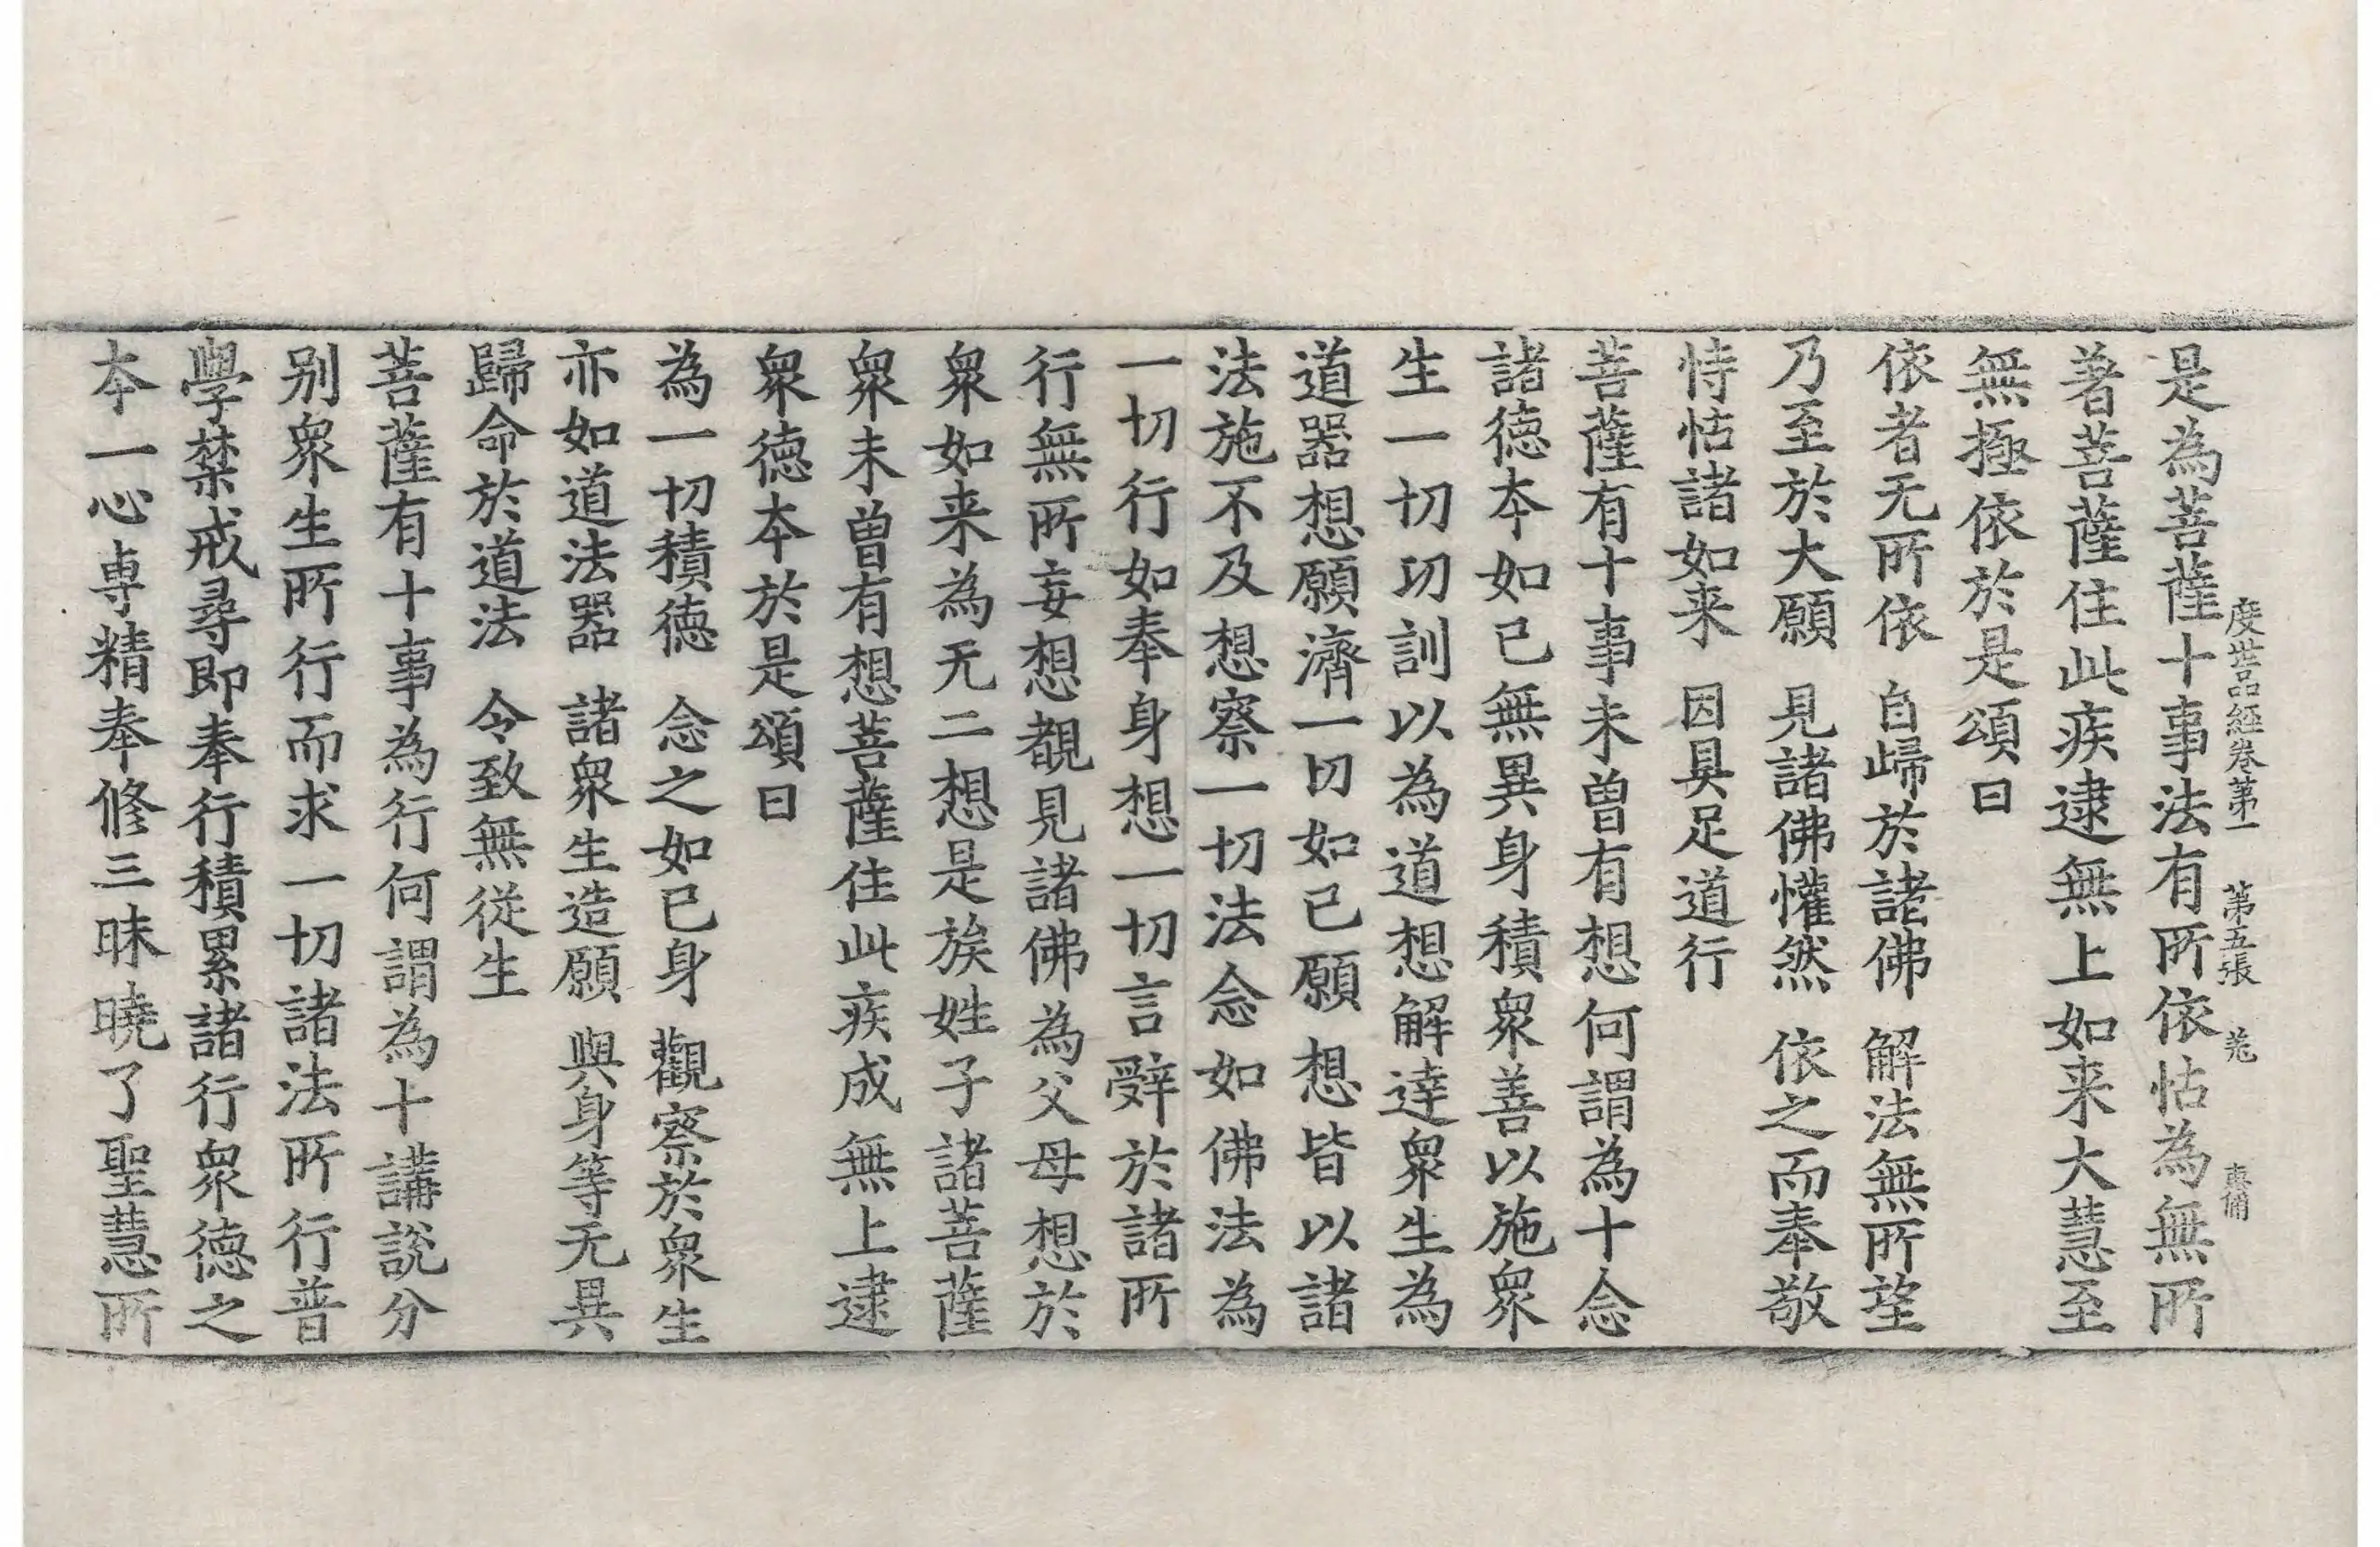 度世品經卷第一　第五張　羌　惠俌
是為菩薩十事法有所依怙為無所
著菩薩住此疾逮無上如来大慧至
無極依於是頌曰
依者无所依　自歸於諸佛　解法無所望
乃至於大願　見諸佛懽然　依之而奉敬
恃怙諸如来　因具足道行
菩薩有十事未曽有想何謂為十念
諸德夲如已無異身積衆善以施衆
生一切㓛訓以為道想解達衆生為
道器想願濟一切如已願想皆以諸
法施不及想察一切法念如佛法為
一切行如奉身想一切言辤於諸所
行無所妄想覩見諸佛為父母想於
衆如来為无二想是族姓子諸菩薩
衆未曽有想菩薩住此疾成無上逮
衆德夲於是頌曰
為一切積德　念之如已身　觀察於衆生
亦如道法器　諸衆生造願　與身等无異
歸命於道法　令致無従生
菩薩有十事為行何謂為十講說分
別衆生所行而求一切諸法所行普
學禁戒尋即奉行積累諸行衆德之
夲一心専精奉修三昧曉了聖慧所